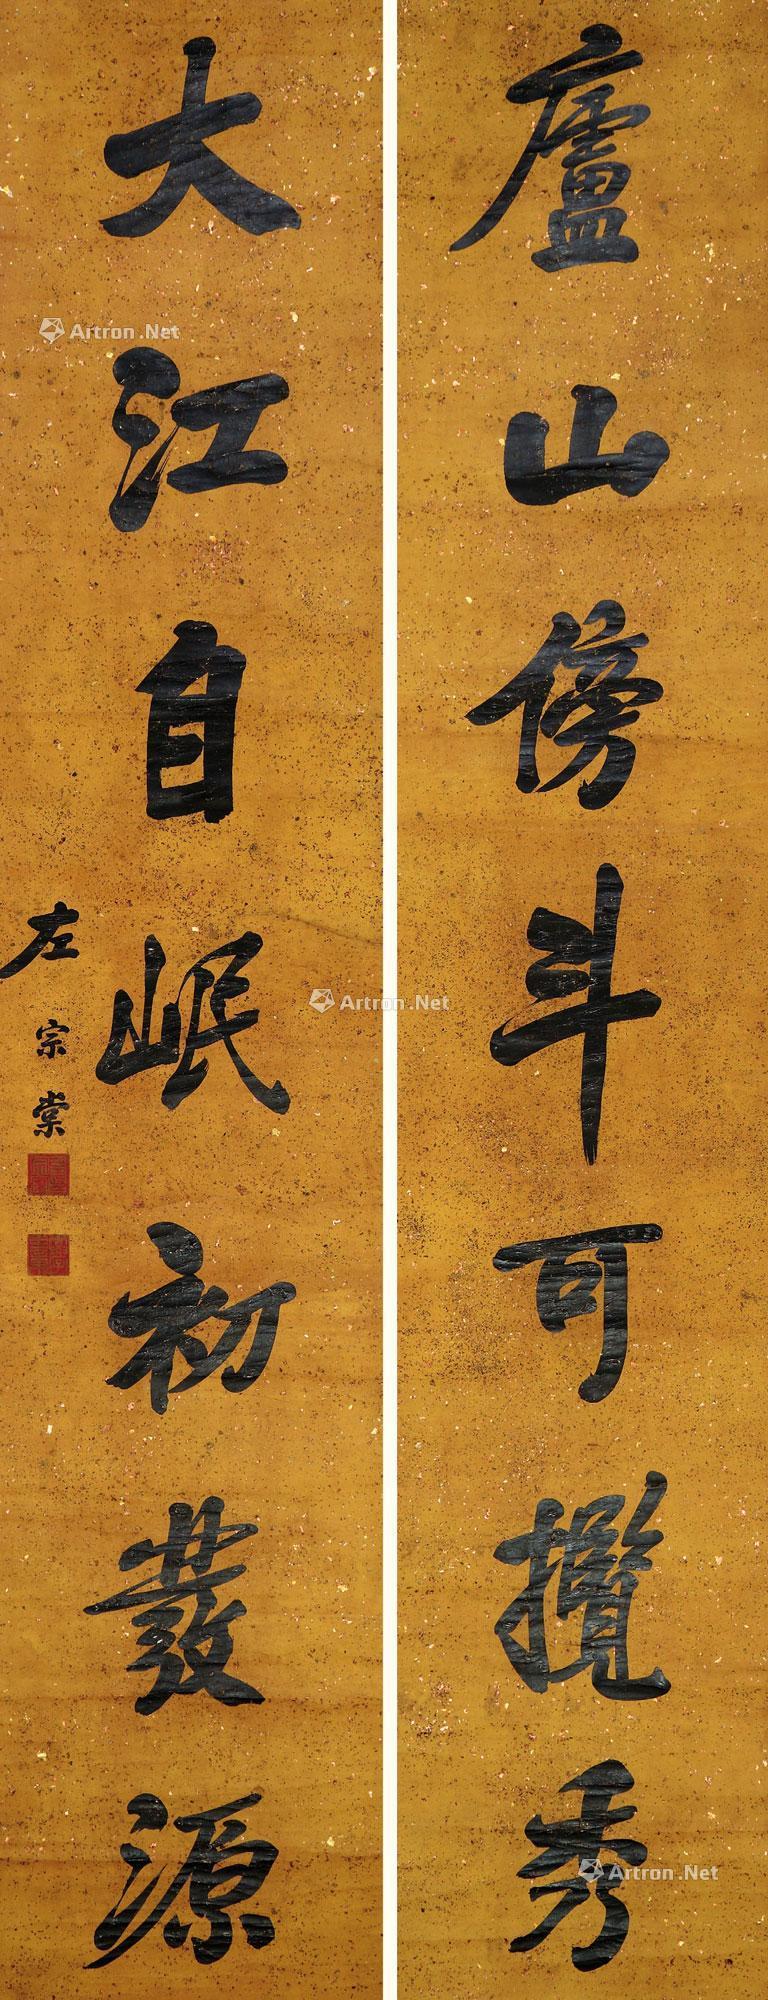 廬山傍斗可攬秀
大江自岷初發源
左宗棠
Artron.Net
Artron.Net
Artron.Net